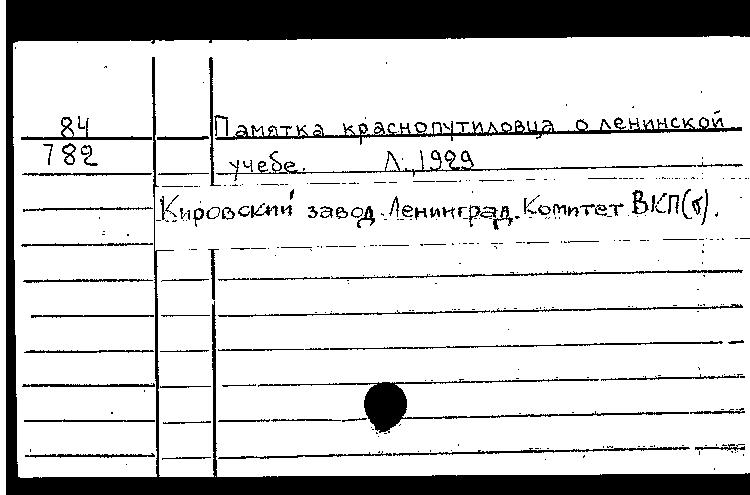 84 Памятка краснопутиловца о ленинской
782 учебе. Л., 1929
Кировский завод. Ленинград. Комитет ВКП(б).